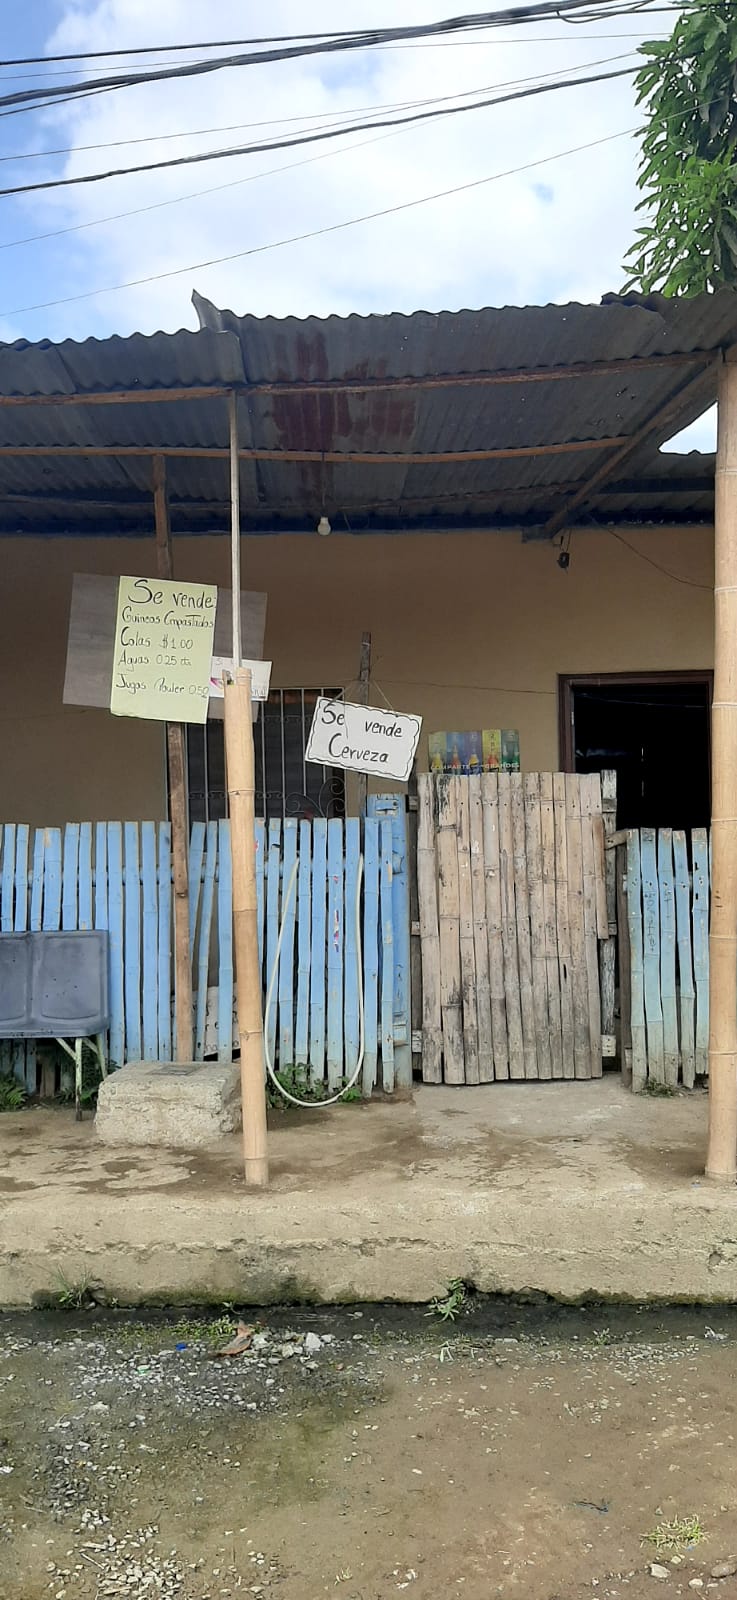 Se vende:
Guineos Empastados
Colas $1.00
Aguas 0.25 cts
Jugos Pauler 0.50
Se vende
Cerveza
COMPARTE GRANDES